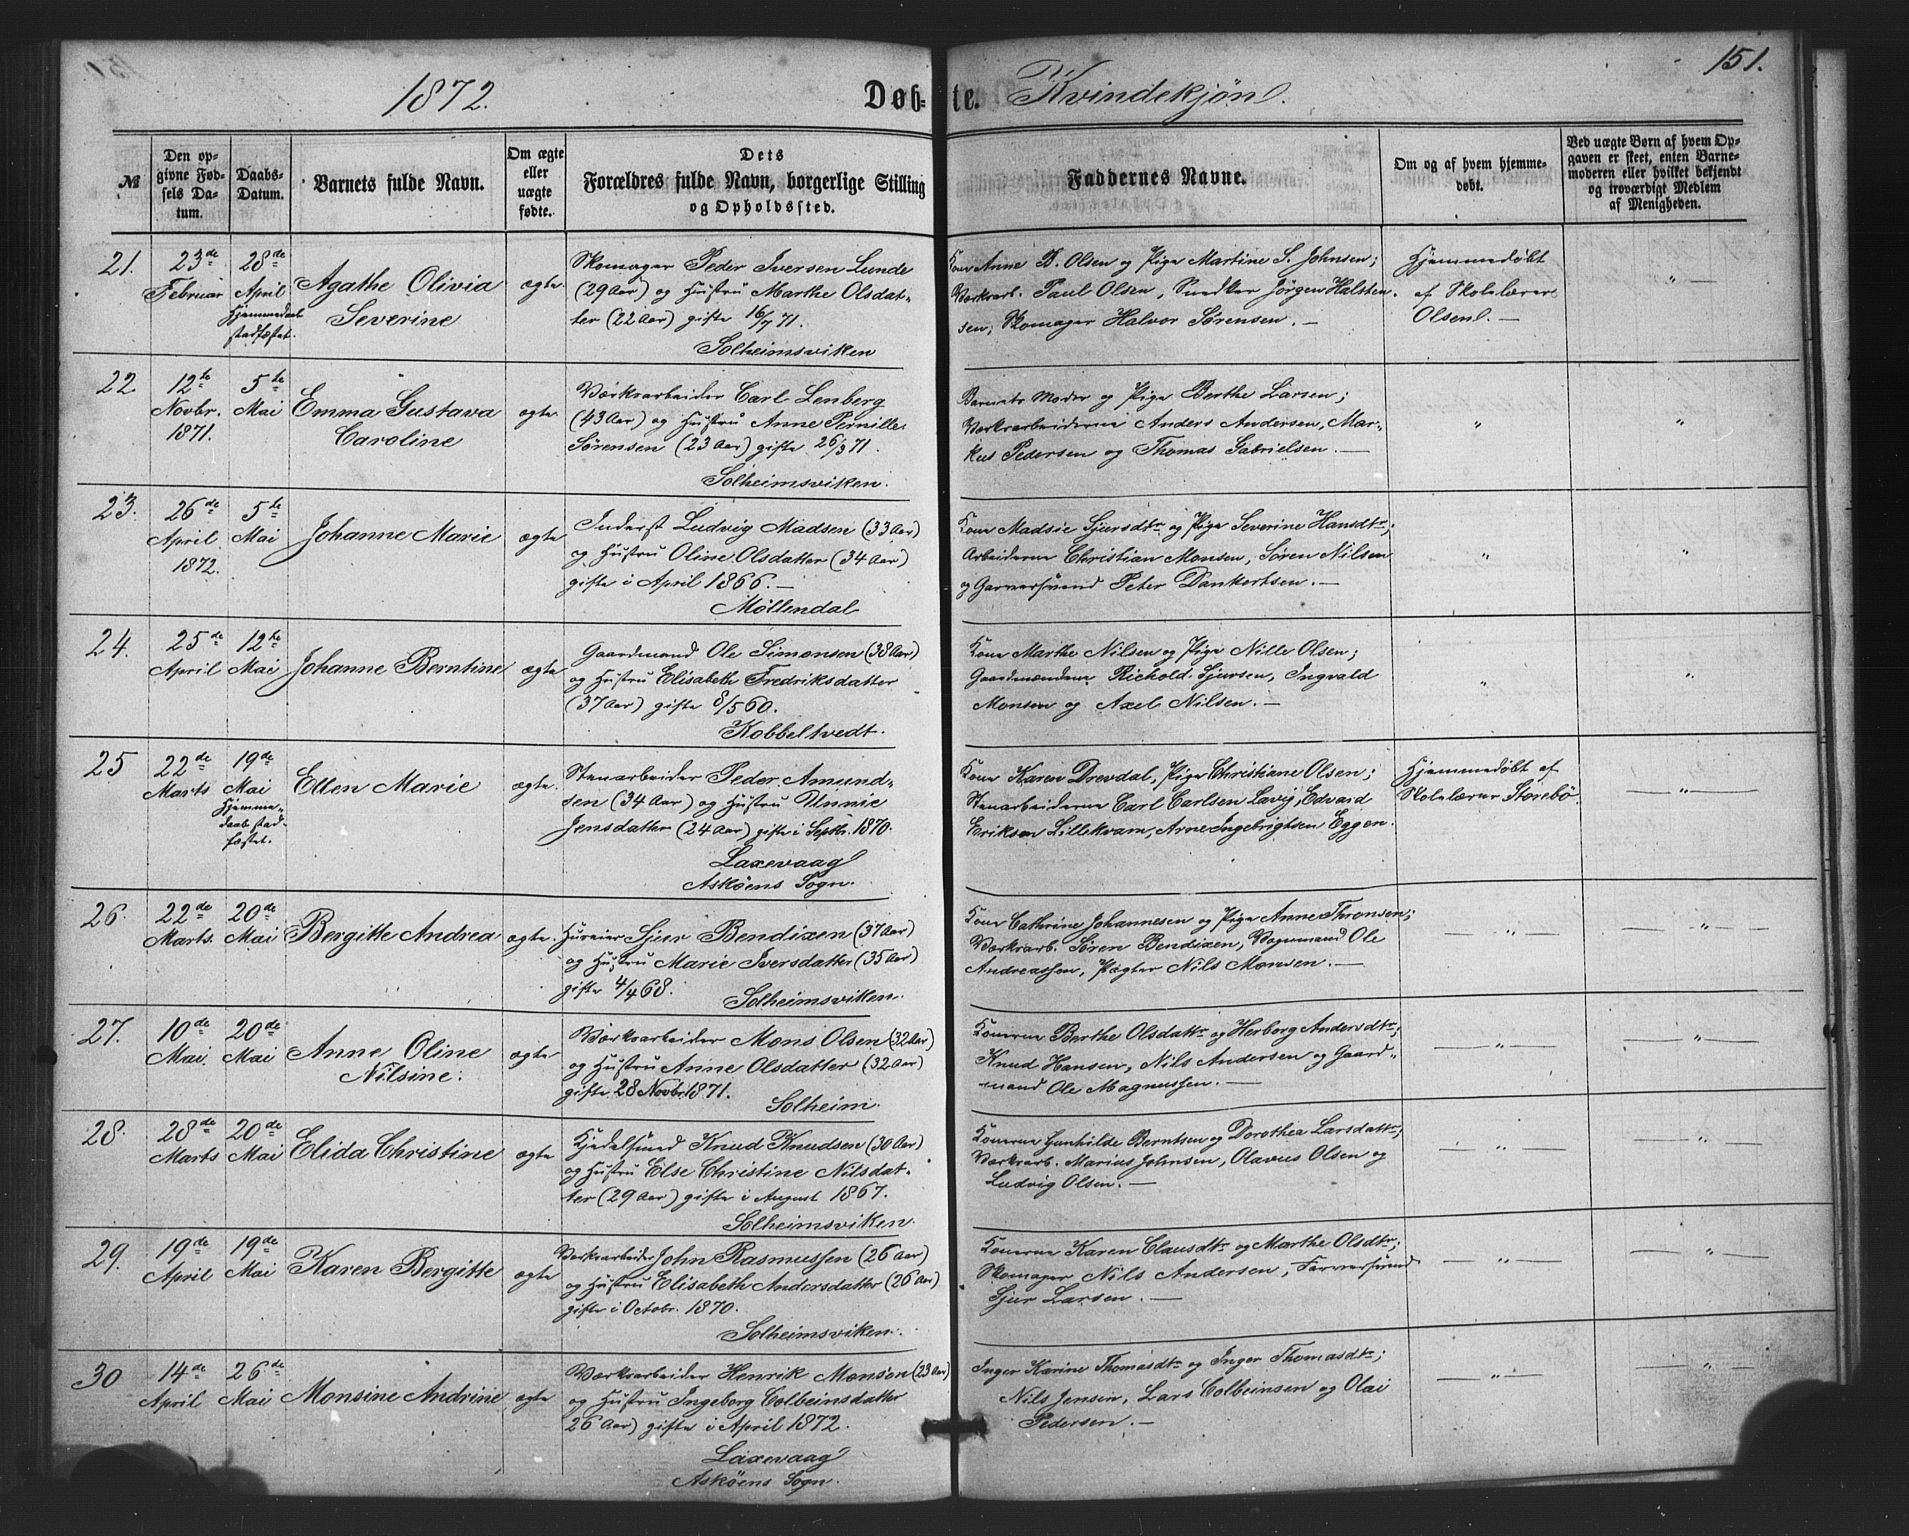 1872.
Døbte. Kvindekjøn.
151.
№
Den opgivne Fødsels Datum.
Daabs-Datum.
Barnets fulde Navn.
Om ægte eller uægte fødte.
Dets Forældres fulde Navn, borgerlige Stilling og Opholdssted.
Faddernes Navne.
Om og af hvem hjemmedøbt.
Ved uægte Børn af hvem Opgaven er skeet, enten Barnemoderen eller hvilket bekjendt og troværdigt Medlem af Menigheden.
21.
23de Februar
28de April Hjemmedaab stadfæstet.
Agathe Olivia
Severine
ægte
Skomager Peder Iversen Lunde
(29 Aar) og Hustru Marthe Olsdat-
ter (22 Aar) gifte 16/7 71.
Solheimsviken
Kone Anne B. Olsen og Pige Martine S. Johnsen;
Værkarb. Paul Olsen, Snedker Jörgen Halsten-
sen, Skomager Halvor Sørensen. —
Hjemmedøbt
af Skolelærer
Olsen. —
"
22
12te Novbr. 1871.
5te Mai
Emma Gustava
Caroline
ægte
Værksarbeider Carl Lenberg
(43 Aar) og Hustru Anne Pernille
Sørensen (23 Aar) gifte 26/3 71.
Solheimsviken.
Barnets Moder og Pige Berthe Larsen;
Værksarbeiderne Anders Andersen, Mar-
kus Pedersen og Thomas Gabrielsen. —
"
"
23.
26de April 1872.
5te Mai
Johanne Marie
ægte
Inderst Ludvig Madsen (33 Aar)
og Hustru Oline Olsdatter (34 Aar)
gifte i April 1866. —
Möllendal
Kone Madsie Sjursdtr og Pige Severine Hansdtr;
Arbeiderne Christian Monsen, Søren Nilsen
og Garversvend Peter Dankertsen. —
"
"
24.
25de April
12te Mai
Johanne Berntine
ægte
Gaardmand Ole Simonsen (38 Aar)
og Hustru Elisabeth Fredriksdatter
(37 Aar) gifte 8/5 60.
Kobbeltvedt.
Kone Marthe Nilsen og Pige Nille Olsen;
Gaardmændene Richold Sjursen, Ingvald
Monsen og Axel Nilsen. —
"
"
25
22de Marts
19de Mai Hjemmedaab stadfæstet.
Ellen Marie
ægte
Stenarbeider Peder Amund-
sen (34 Aar) og Hustru Unnie
Jensdatter (24 Aar) gifte i Septbr. 1870.
Laxevaag
Askøens Sogn.
Kone Karen Drevdal, Pige Christiane Olsen;
Stenarbeiderne Carl Carlsen Lavij, Edvard
Eriksen Lillekvam, Arne Ingebrigtsen Eggen.
Hjemmedøbt af
Skolelærer Storebö.
— " —
26.
22de Marts.
20de Mai
Bergitte Andrea
ægte.
Huseier Sjur Bendixen (37 Aar)
og Hustru Marie Iversdatter (35 Aar)
gifte 4/4 68.
Solheimsviken.
Kone Cathrine Johannesen og Pige Anne Thronsen;
Værkarb. Søren Bendixen, Vognmand Ole
Andreassen, Pagter Nils Monsen. —
— " —
— " —
27.
10de Mai.
20de Mai
Anne Oline
Nilsine.
ægte
Værksarbeider Mons Olsen (32 Aar)
og Hustru Anne Olsdatter (32 Aar)
gifte 28 Novbr. 1871.
Solheim.
Konerne Berthe Olsdatr og Herborg Andersdtr;
Knud Hansen, Nils Andersen og Gaard-
mand Ole Magnussen. —
— " —
— " —
28.
28de Marts
20de Mai
Elida Christine
ægte
Kjedelsmed Knud Knudsen (30 Aar)
og Hustru Else Christine Nilsdat-
ter (29 Aar) gifte i August 1867.
Solheimsviken.
Konerne Gunhilde Berntsen og Dorothea Larsdattr;
Værkarb. Marius Johnsen, Olavus Olsen og
Ludvig Olsen. —
— " —
— " —
29.
19de April
19de Mai
Karen Bergitte
ægte
Værksarbeider John Rasmussen (26 Aar)
og Hustru Elisabeth Andersdatter (26 Aar)
gifte i Octobr. 1870.
Solheimsviken.
Konerne Karen Clausdtr og Marthe Olsdtr;
Skomager Nils Andersen, Farversvend
Sjur Larsen. —
— " —
— " —
30
14de April
26de Mai
Monsine Andrine
ægte
Værksarbeider Henrik Monson (23 Aar)
og Hustru Ingeborg Colbeinsdatter
26 Aar) gifte i April 1872.
Laxevaag
Askøens Sogn.
Inger Karine Thomasdtr og Inger Thomasdtr;
Nils Jensen, Lars Colbeinsen og Olai
Pedersen. —
— " —
— " —